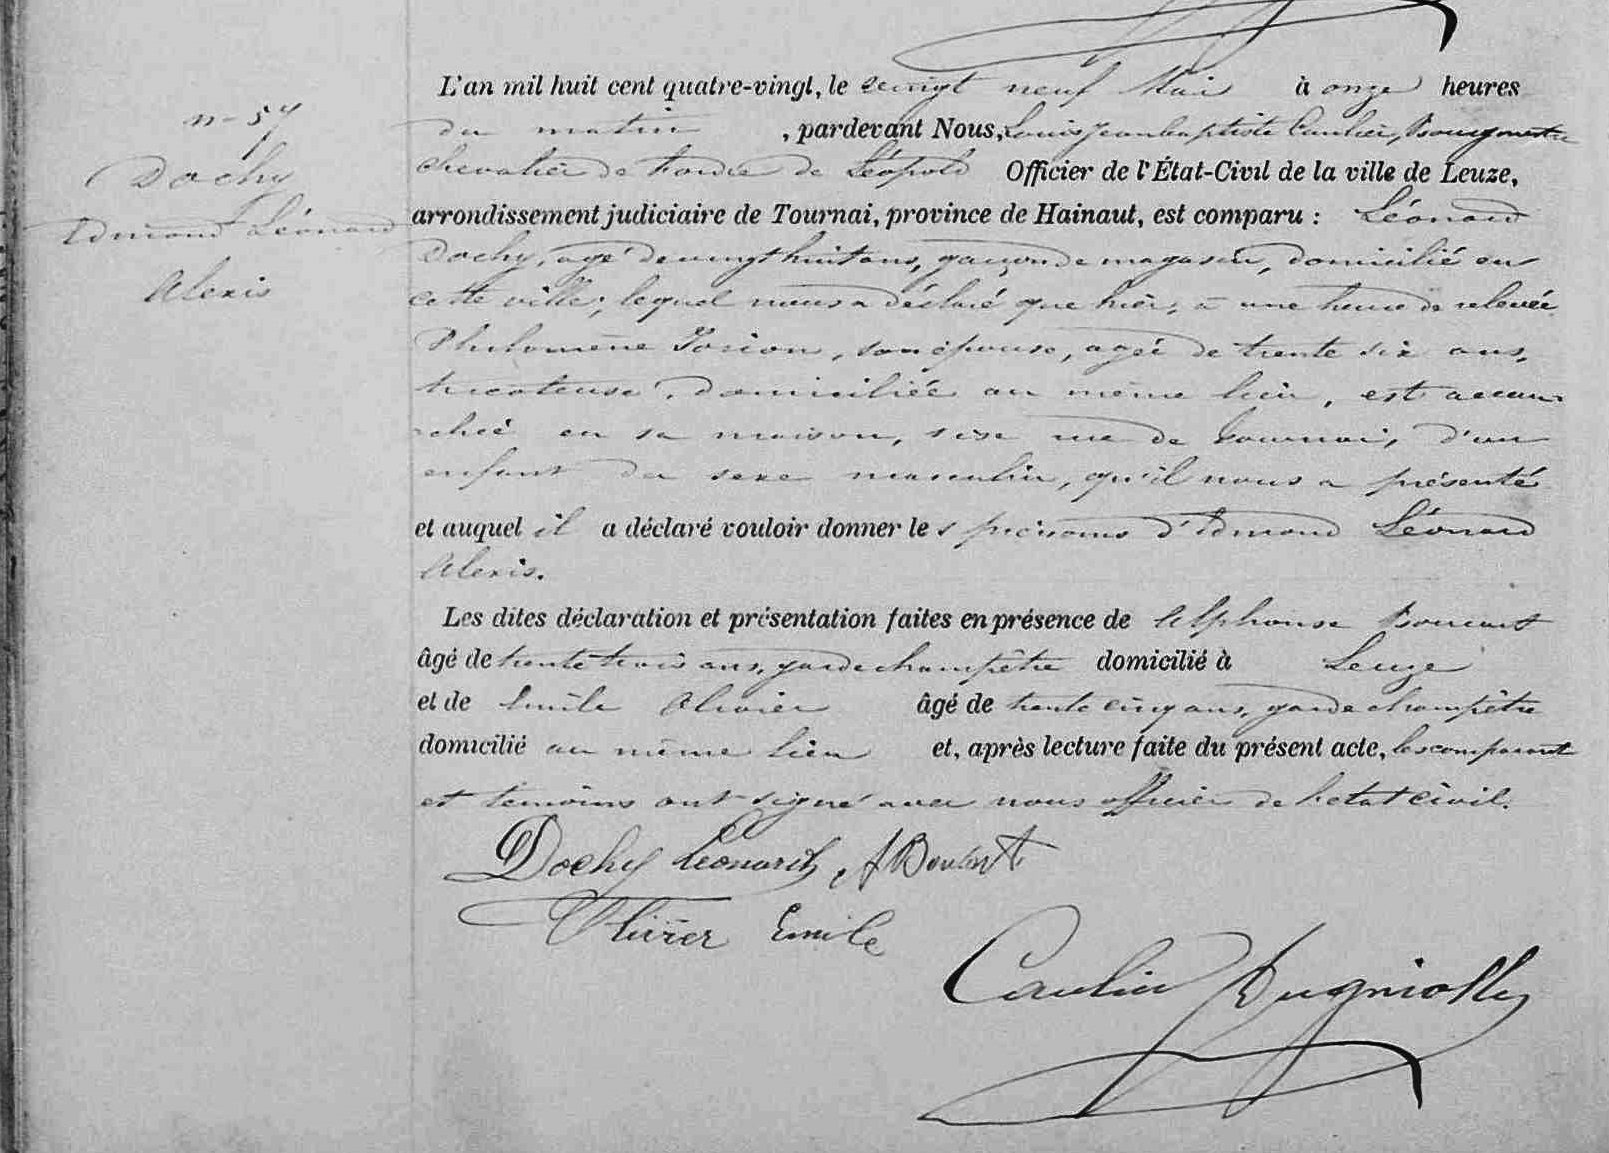 n- 57
Dochy
Edmond Léonard
Alexis
L'an mil huit cent quatre-vingt, le vingt neuf Mai à onze heures
du matin , pardevant Nous, Louis Jean baptiste Caulier, Bourgmestre
chevalier de l'ordre de Léopold Officier de l'État-Civil de la ville de Leuze,
arrondissement judiciaire de Tournai, province de Hainaut, est comparu : Léonard
Dochy, agé de vingt huit ans, garçon de magasin, domicilié en
cette ville; lequel nous a déclaré que hier, à une heure de relevée
Philomène Josion, son épouse, agée de trente six ans,
tricoteuse, domiciliée au même lieu, est accou-
chée en sa maison, sise rue de Tournai, d'un
enfant du sexe masculin, qu'il nous a présenté
et auquel il a déclaré vouloir donner les prénoms d'Edmond Léonard
Alexis.
Les dites déclaration et présentation faites en présence de Alphonse Boucart
âgé de trente trois ans, garde champêtre domicilié à Leuze
et de Emile Olivier âgé de trente cinq ans, garde champêtre
domicilié au même lieu et, après lecture faite du présent acte, les comparant
et témoins ont signé avec nous officier de l'etat civil.
Dochy Léonard ABoucart
Olivier Emile
Caulier Dugniolle